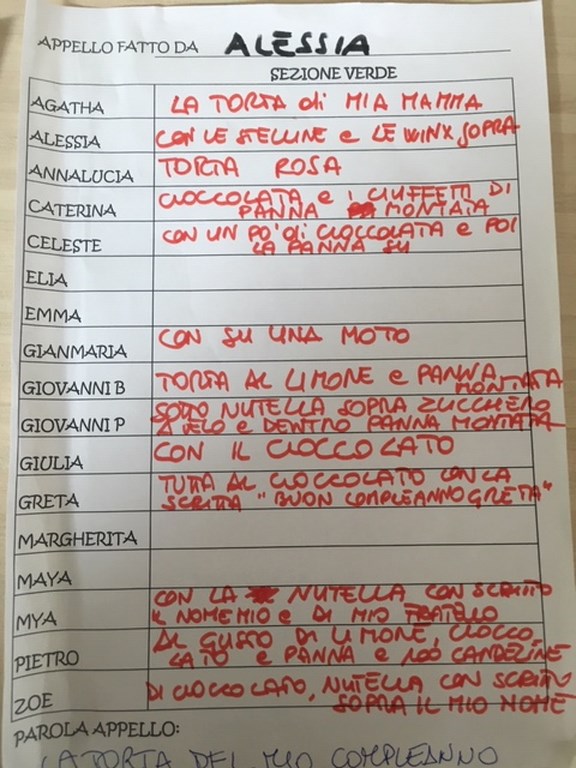 APPELLO FATTO DA ALESSIA
SEZIONE VERDE
AGATHA LA TORTA di MIA MAMMA
ALESSIA CON LE STELLINE e LE WINX SOPRA
ANNALUCIA TORTA ROSA
CATERINA CIOCCOLATA e I CIUFFETTI DI
PANNA MONTATA
CELESTE CON UN PO' di CIOCCOLATA e POI
LA PANNA SU
ELIA
EMMA
GIANMARIA CON SU UNA MOTO
GIOVANNI B TORTA AL LIMONE e PANNA
MONTATA
GIOVANNI P SOTTO NUTELLA SOPRA ZUCCHERO
A VELO e DENTRO PANNA MONTATA
GIULIA CON IL CIOCCOLATO
GRETA TUTTA AL CIOCCOLATO CON LA
SCRITTA "BUON COMPLEANNO GRETA"
MARGHERITA
MAYA
MYA CON LA NUTELLA CON SCRITTO
IL NOME MIO e DI MIO FRATELLO
PIETRO AL GUSTO DI LIMONE, CIOCCO
LATO e PANNA e 100 CANDELINE
ZOE DI CIOCCOLATO, NUTELLA CON SCRITTO
SOPRA IL MIO NOME
PAROLA APPELLO:
LA TORTA DEL MIO COMPLEANNO